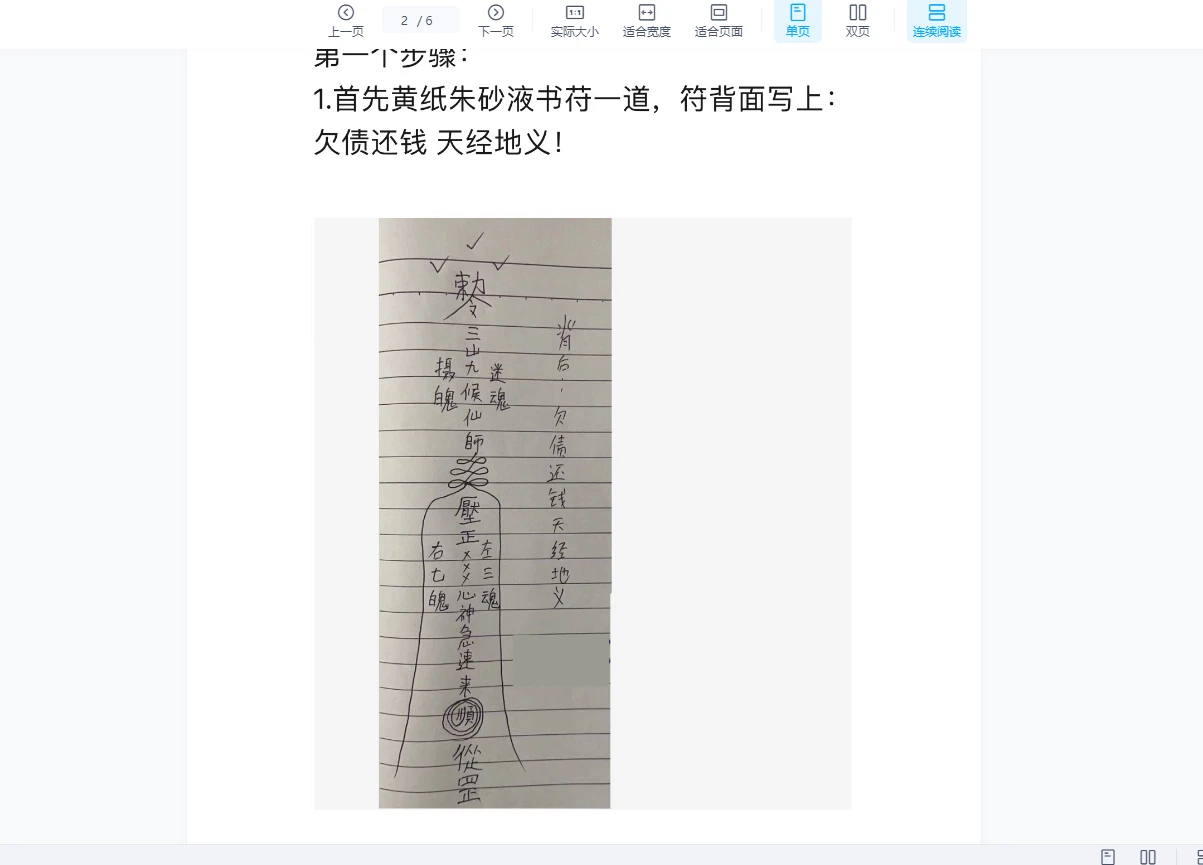 上一页
2 / 6
下一页
1:1
实际大小
适合宽度
适合页面
单页
双页
连续阅读
第一个步骤：
1.首先黄纸朱砂液书苻一道，符背面写上：
欠债还钱 天经地义！
敕令
三山九候仙師
摄魄
迷魂
壓正
心神急速来
順
從罡
右七魄
左三魂
背后：欠债还钱天经地义